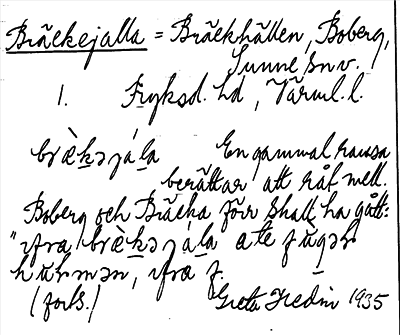 Bräckejalla = Bräckhällen, Boberg,
Sunne sn v.
1. Fryksd. hd, Värml. l.
bræ̀kəjála En gammal kausa
berättar att råf mell.
Boberg och Bräcka förr skall ha gått:
"ifra bræ̀kəjála ate
(forts.) Greta Hedin 1935